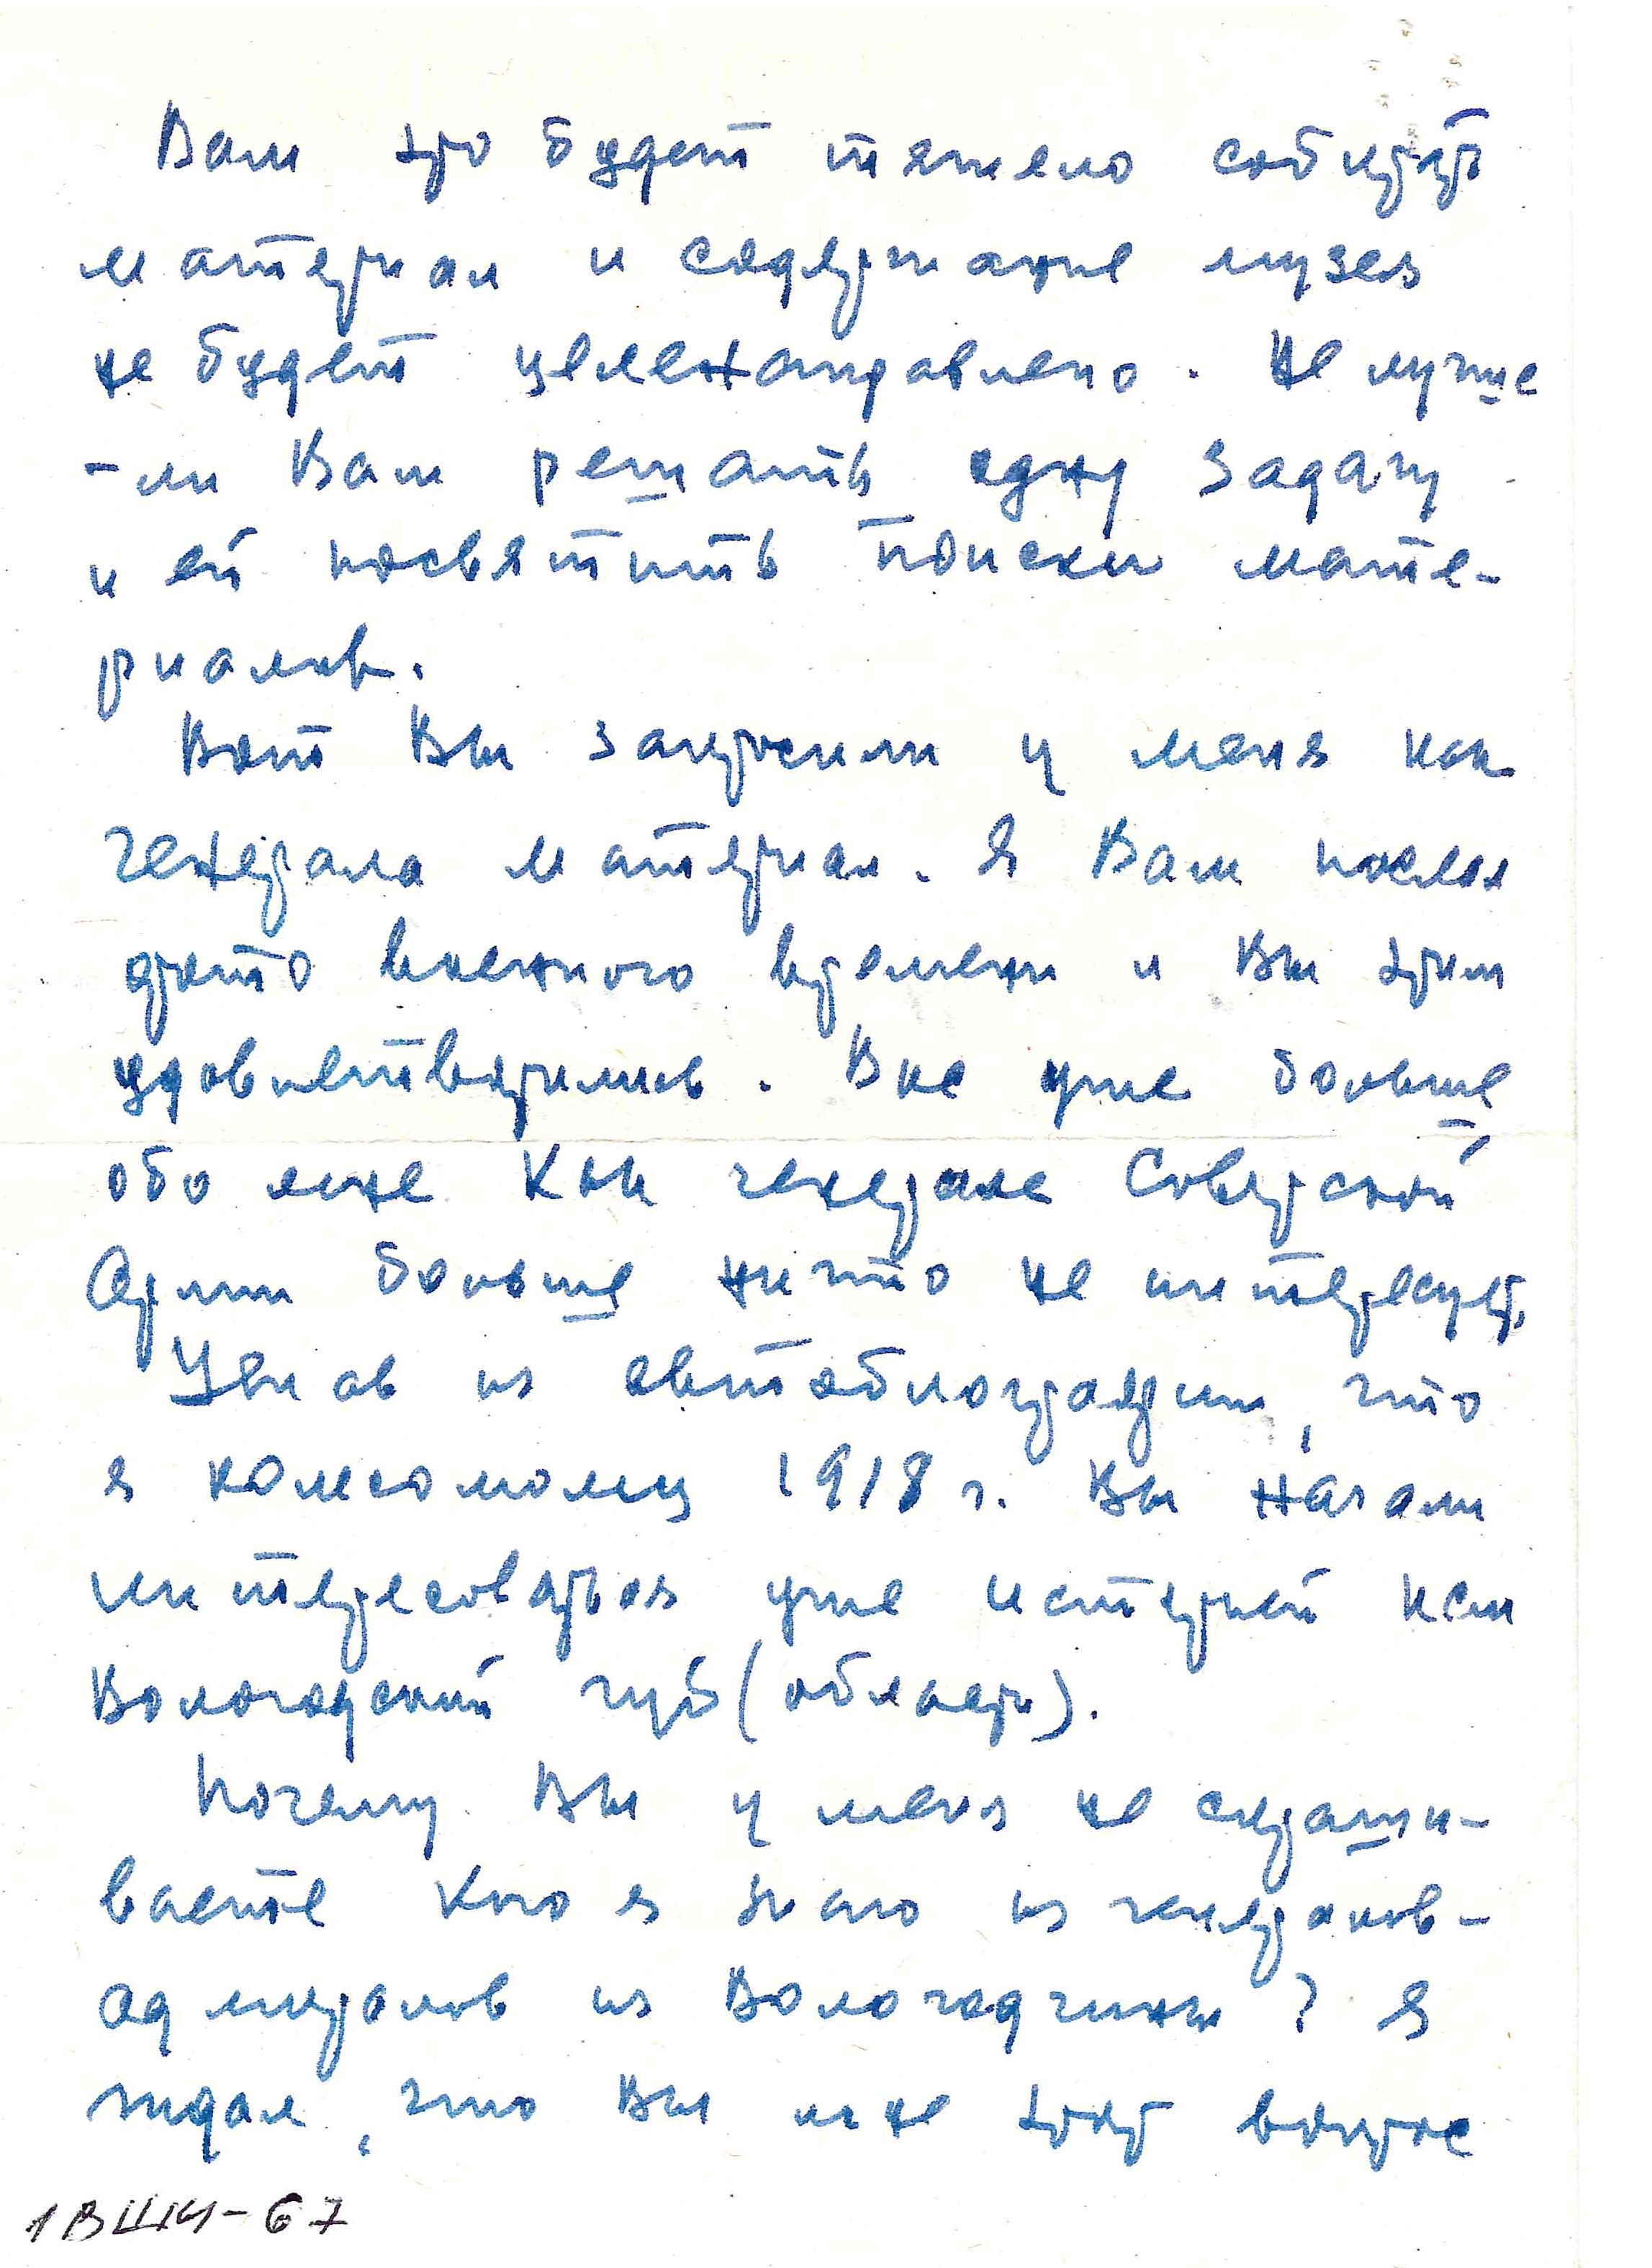 Вам это будет тяжело собирать
материал и содержание музея
не будет целенаправлено. Не лучше
-ли Вам решать одну задачу
и ей посвятить поиски мате-
риалов.
Вот Вы запросили у меня как
генерала материал. Я Вам послал
фото военного времени и Вы этим
удовлетворились. Вас уже больше
обо мне как генерале Советской
Армии больше ничто не интересует.
Узнав из автобиографии, что
я комсомолец 1918 г. Вы начали
интересоваться уже историей ксм
Вологодский губ (область).
Почему Вы у меня не спраши-
ваете кого я знаю из генералов-
адмиралов из Вологодчины? Я
ждал, что Вы мне этот вопрос
1ВШИ-67